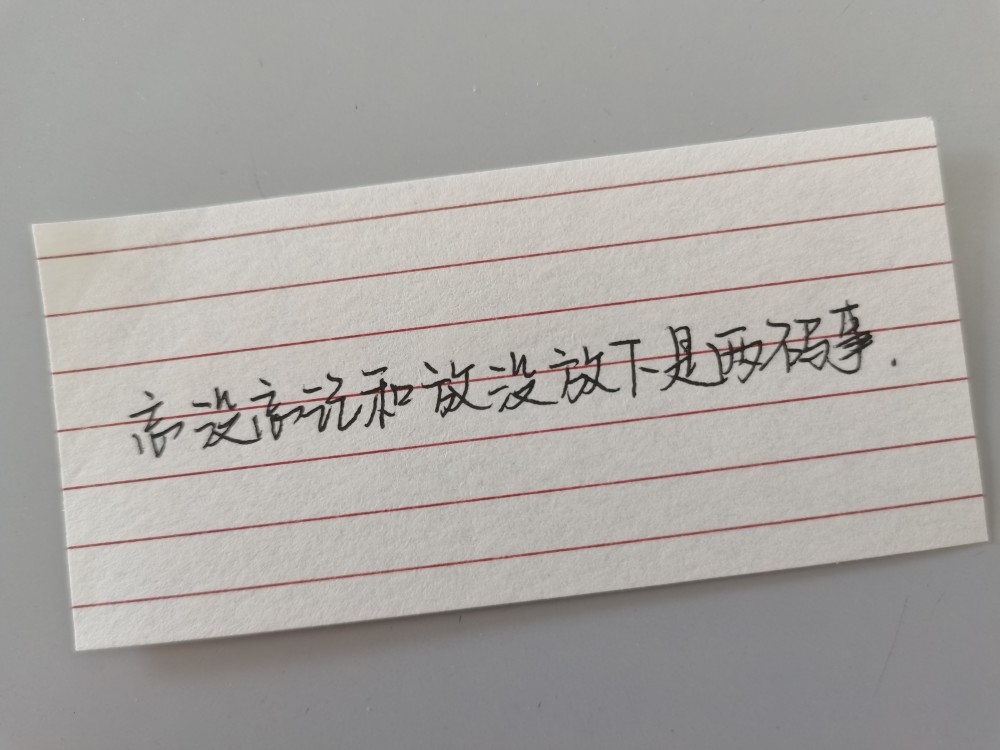 忘没忘记和放没放下是两码事.